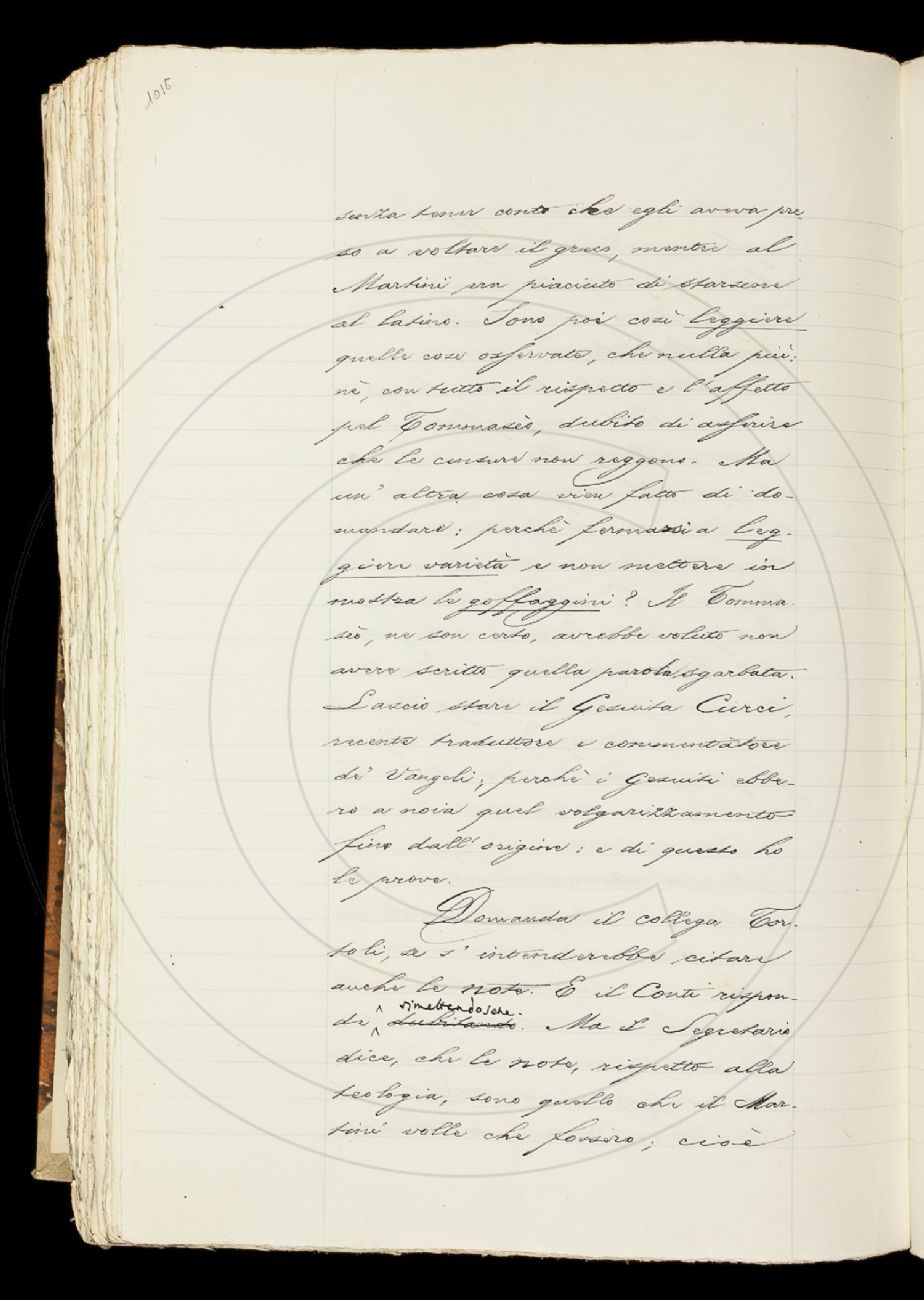 1015
senza tener conto che egli aveva pre-
so a voltare il greco, mentre al
Martini era piaciuto di starsene
al latino. Sono poi così leggiere
quelle cose osservate, che nulla più:
nè, con tutto il rispetto e l'affetto
pel Tommasèo, dubito di asserire
che le censure non reggono. Ma
un' altra cosa vien fatto di do-
mandare: perchè fermarsi a leg-
giere varietà e non mettere in
mostra le goffaggini? Il Tomma-
sèo, ne son certo, avrebbe voluto non
avere scritto quella parola sgarbata.
Lascio stare il Gesuita Curci,
recente traduttore e commentatore
de' Vangeli; perchè i Gesuiti ebbe-
ro a noia quel volgarizzamento
fino dall' origine: e di questo ho
le prove.
Domanda il collega Tor-
toli, se s' intenderebbe citare
anche le note. E il Conti rispon-
de, rimettendosene.
dubitando. Ma il Segretario
dice, che le note, rispetto alla
teologia, sono quello che il Mar-
tini volle che fossero; cioè